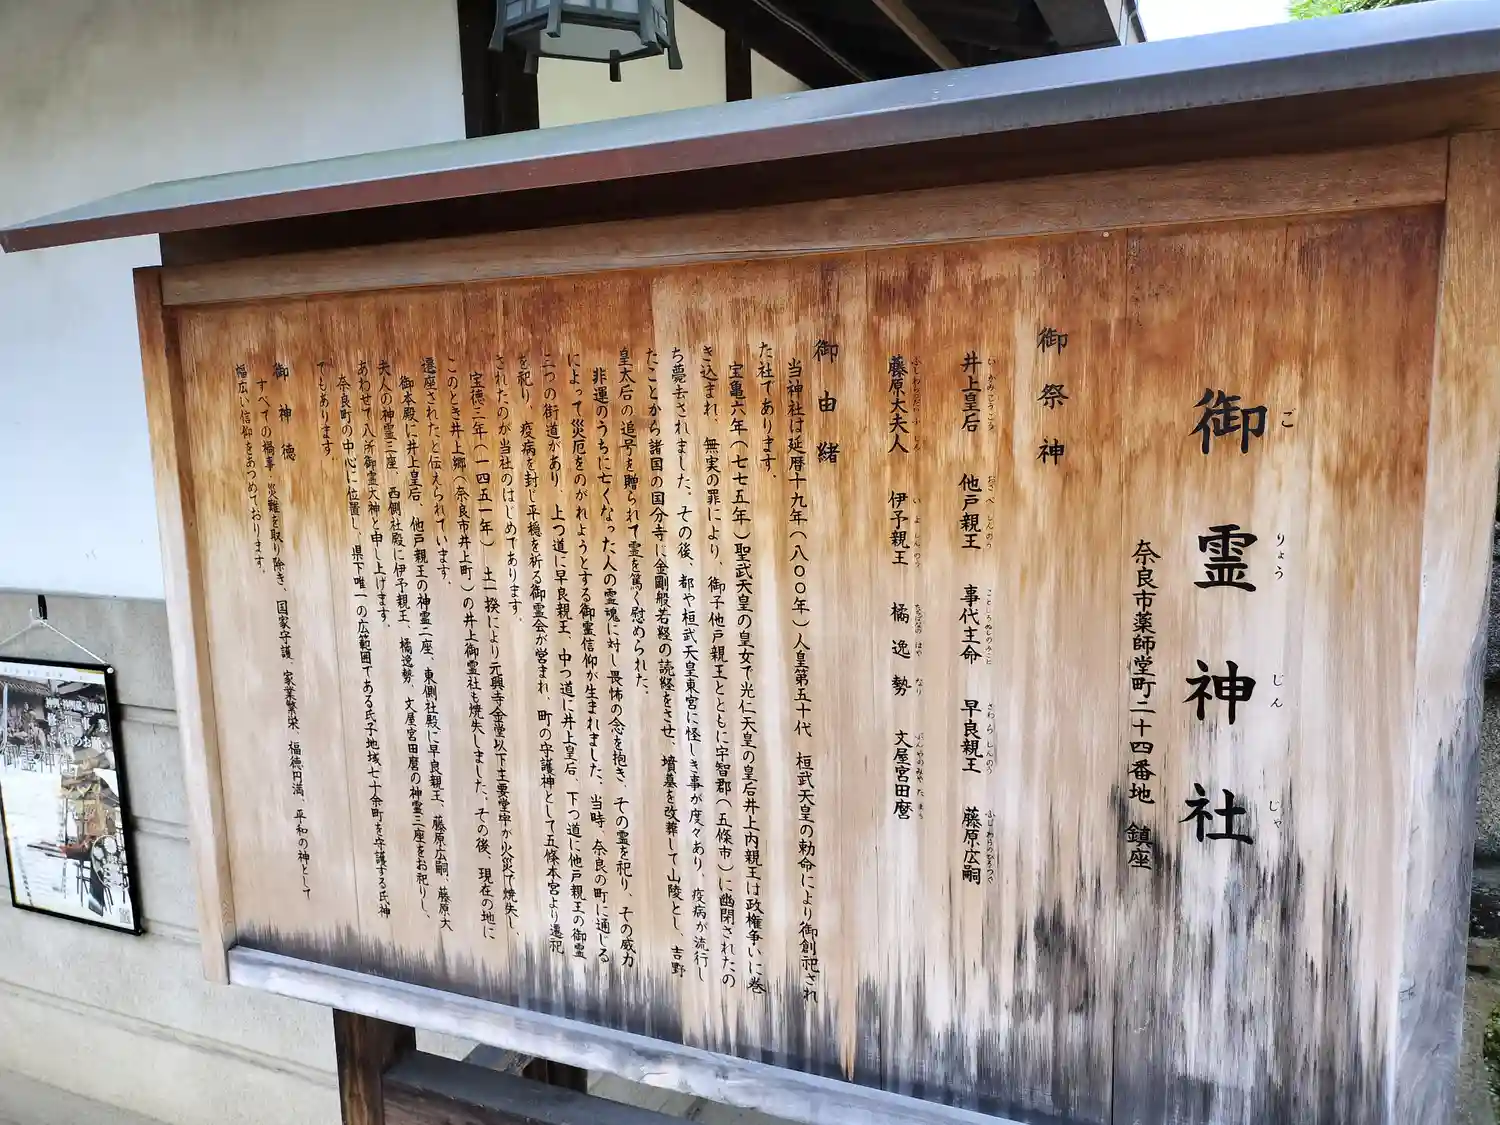 御霊神社
ごりょうじんじゃ
奈良市薬師堂町二十四番地 鎮座
御祭神
井上皇后 他戸親王 事代主命 早良親王 藤原広嗣
いかみこうごう おさべしんのう ことしろぬしのみこと さわらしんのう ふじわらのひろつぐ
藤原大夫人 伊予親王 橘逸勢 文屋宮田麿
ふじわらだいふじん いよしんのう たちばなのはやなり ぶんやのみやたまろ
御由緒
当神社は延暦十九年(八〇〇年)人皇第五十代 桓武天皇の勅命により御創祀され
た社であります。
宝亀六年(七七五年)聖武天皇の皇女で光仁天皇の皇后井上内親王は政権争いに巻
き込まれ、無実の罪により、御子他戸親王とともに宇智郡(五條市)に幽閉されたの
ち薨去されました。その後、都や桓武天皇東宮に怪しき事が度々あり、疫病が流行し
たことから諸国の国分寺に金剛般若経の読経をさせ、墳墓を改葬して山陵とし、吉野
皇太后の追号を贈られて霊を篤く慰められた。
非運のうちに亡くなった人の霊魂に対し畏怖の念を抱き、その霊を祀り、その威力
によって災厄をのがれようとする御霊信仰が生まれました。当時、奈良の町に通じる
三つの街道があり、上つ道に早良親王、中つ道に井上皇后、下つ道に他戸親王の御霊
を祀り、疫病を封じ平穏を祈る御霊会が営まれ、町の守護神として五條本宮より遷祀
されたのが当社のはじめであります。
宝徳三年(一四五一年) 土一揆により元興寺金堂以下主要堂宇が火災で焼失し、
このとき井上郷(奈良市井上町)の井上御霊社も焼失しました。その後、現在の地に
遷座されたと伝えられています。
御本殿に井上皇后、他戸親王の神霊二座、東側社殿に早良親王、藤原広嗣、藤原大
夫人の神霊三座、西側社殿に伊予親王、橘逸勢、文屋宮田麿の神霊三座をお祀りし、
あわせて八所御霊大神と申し上げます。
奈良町の中心に位置し、県下唯一の広範囲である氏子地域七十余町を守護する氏神
でもあります。
御神徳
すべての禍事、災難を取り除き、国家守護、家業繁栄、福徳円満、平和の神として
幅広い信仰をあつめております。